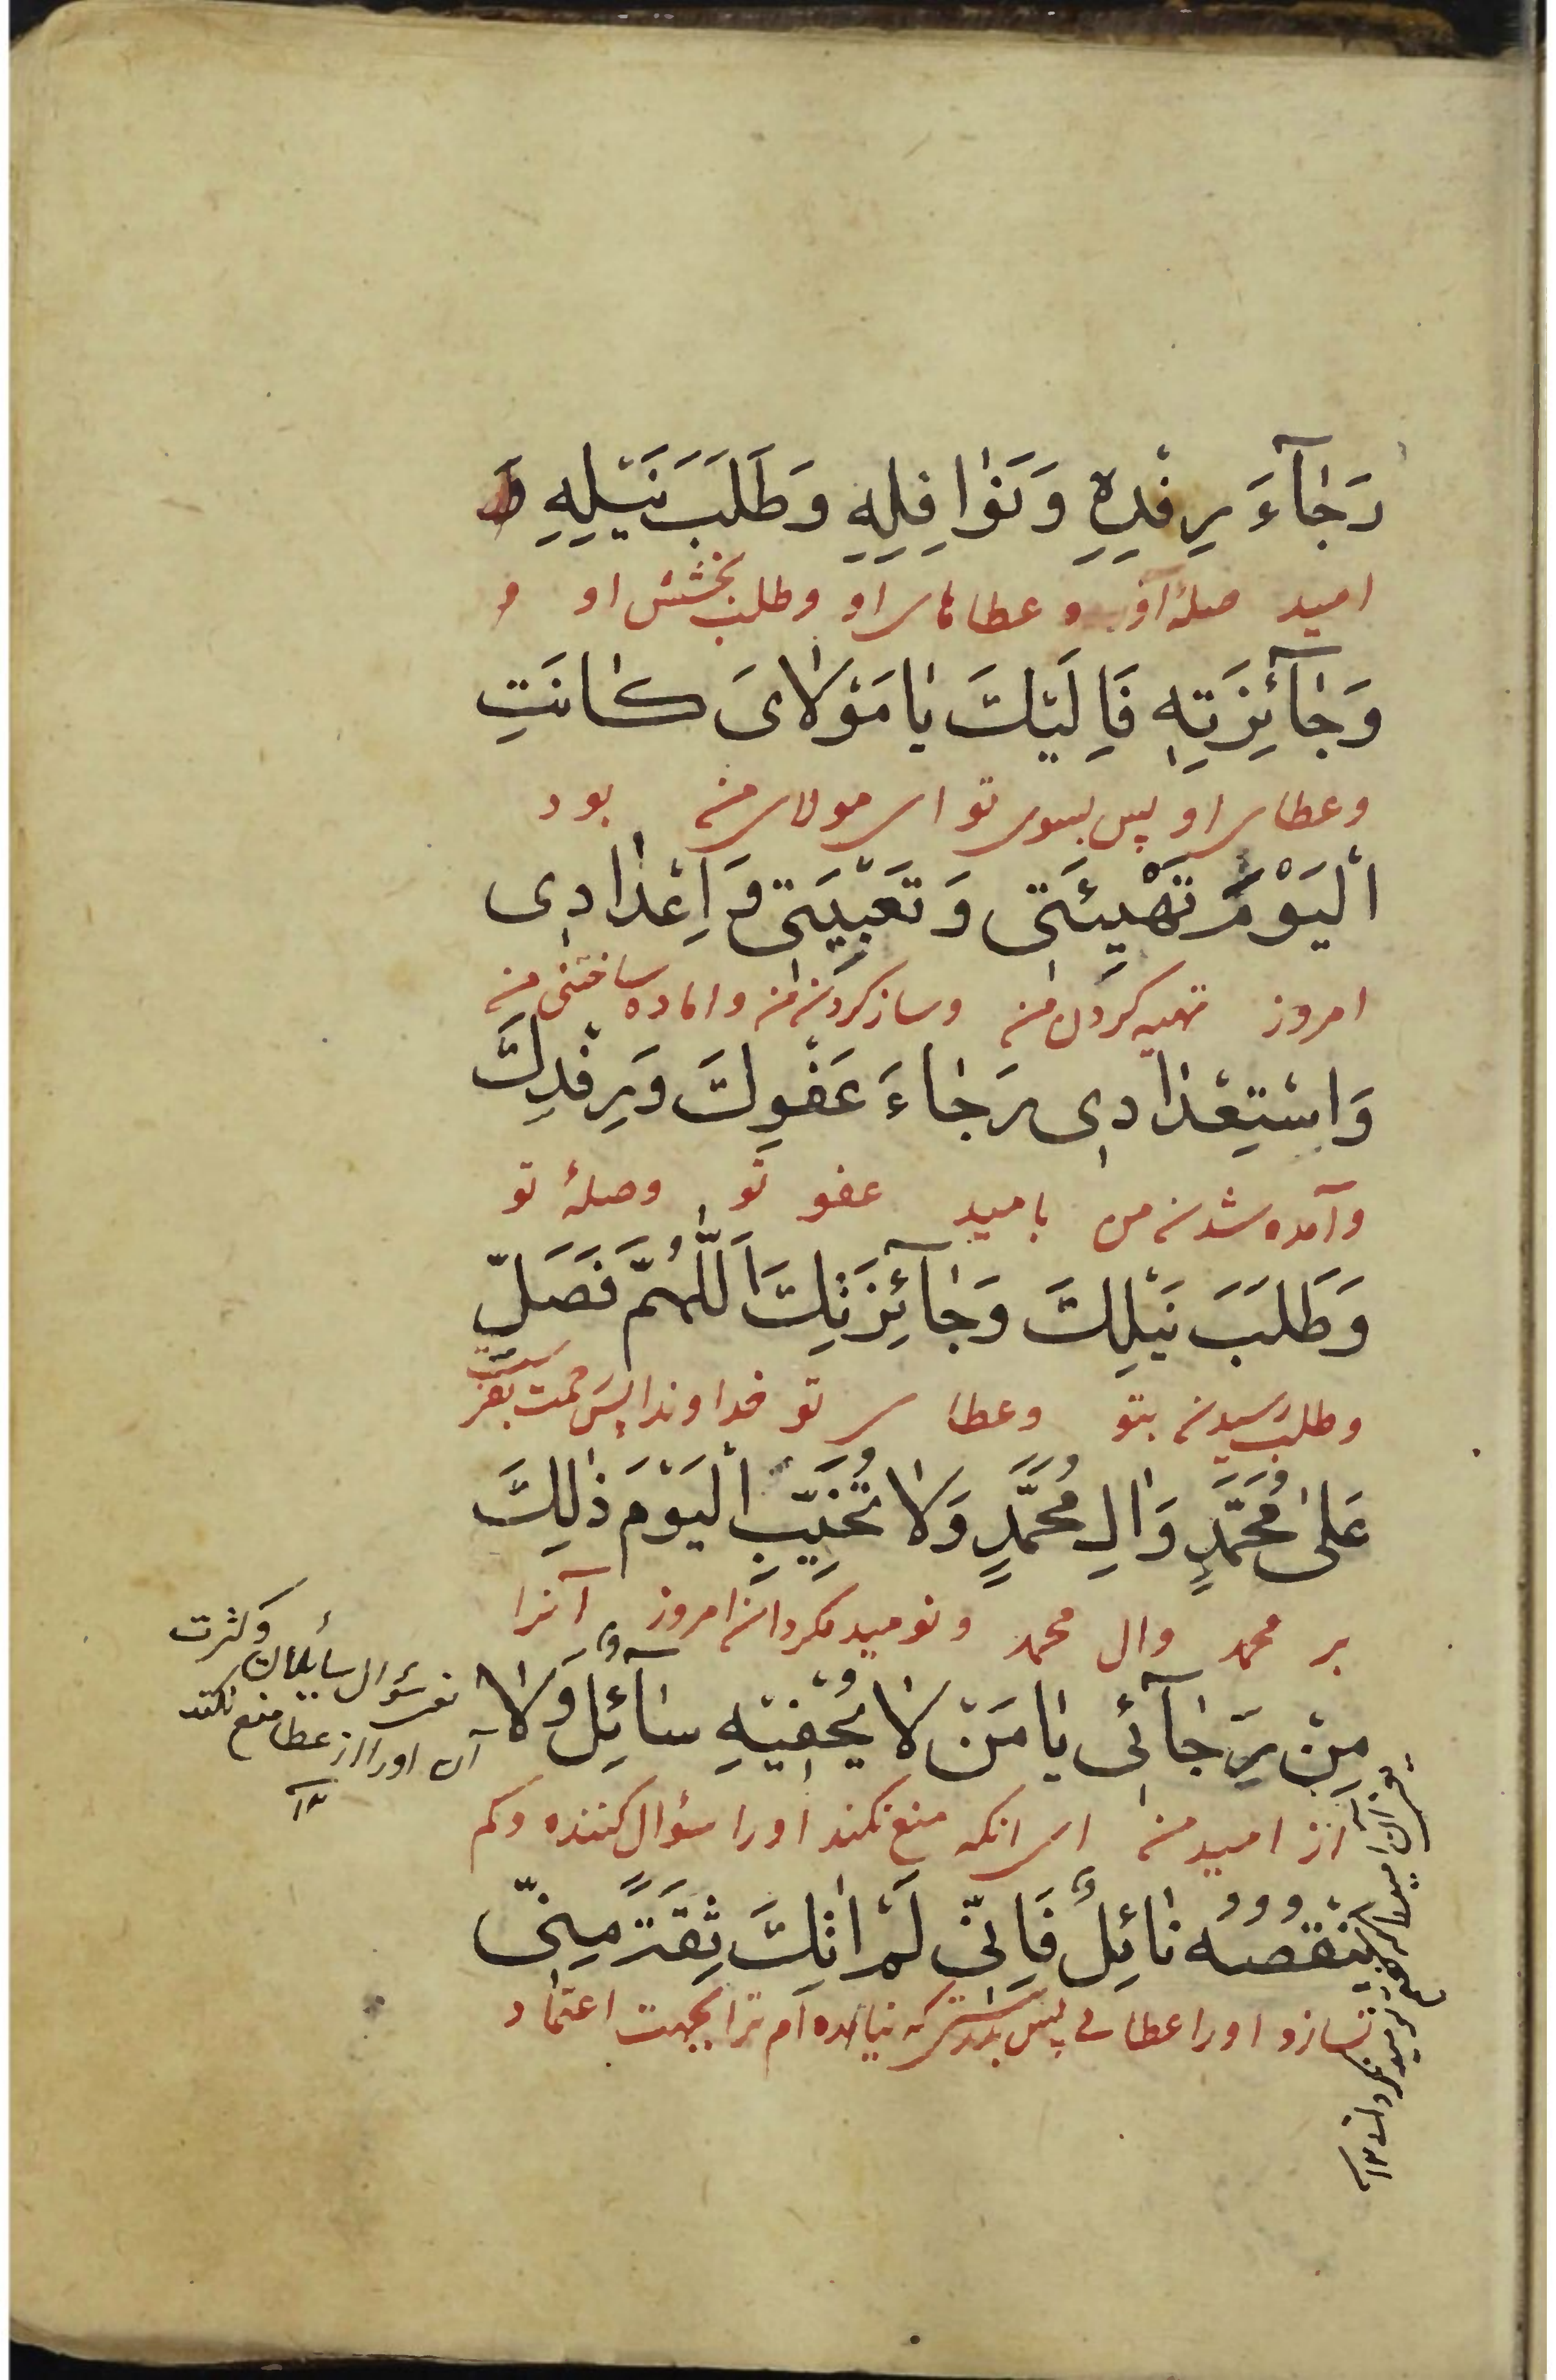 رَجٰآءَ رِفْدِهِ وَنَوٰافِلِهِ وَطَلَبَ نَيْلِهِ وَ
امید صلهٔ او و عطاهای او و طلب بخشش او و
وَجٰآئِزَتِهِ فَاِلَيْكَ يٰا مَوْلٰاىَ كٰانَتِ
و عطای او پس بسوی تو ای مولای من بود
الْيَوْمَ تَهْيِئَتِى وَتَعْبِيَتِى وَ اِعْدٰادِى
امروز تهیه کردن من و ساز کردن من و اماده ساختن من
وَاسْتِعْدٰادِى رَجٰاءَ عَفْوِكَ وَرِفْدِكَ
و آمده شدن من بامید عفو تو و صلهٔ تو
وَطَلَبَ نَيْلِكَ وَجٰآئِزَتِكَ اَللّٰهُمَّ فَصَلِّ
و طلب رسیدن بتو و عطای تو خداوندا پس رحمت بفرست
عَلىٰ مُحَمَّدٍ وَاٰلِ مُحَمَّدٍ وَلٰا تُخَيِّبِ الْيَوْمَ ذٰلِكَ
بر محمد و ال محمد و نومید مگردان امروز آنرا
مِنْ رَجٰآئِى يٰا مَنْ لٰا يُحْفِيْهِ سٰآئِلٌ وَلٰا
از امید من ای انکه منع نکند اورا سؤال کننده و کم
يَنْقُصُهُ نٰائِلٌ فَاِنِّى لَمْ اٰتِكَ ثِقَةً مِنِّى
نسازد اورا عطائی پس بدرستی که نیامده ام ترا بجهت اعتماد
وکثرت
سؤال سایلان
آن اورا از عطا منع نکند
۱۲